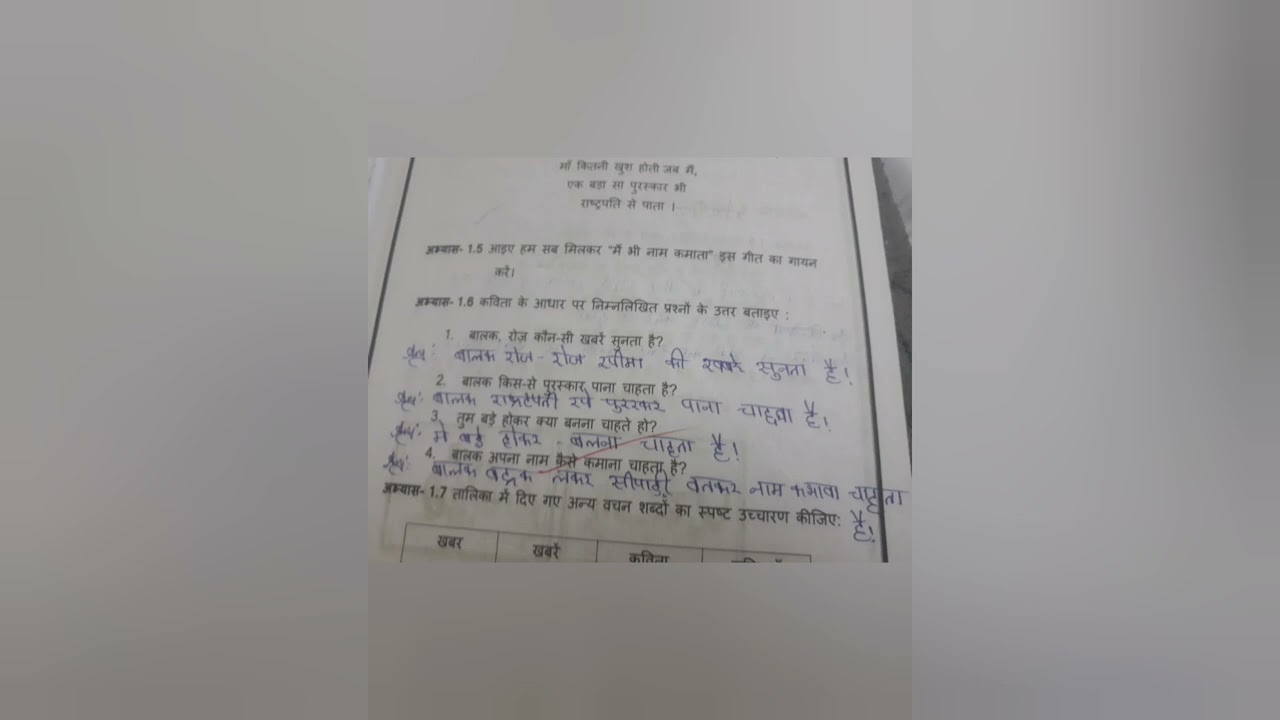 माँ कितनी खुश होती जब मैं,
एक बड़ा सा पुरस्कार भी
राष्ट्रपति से पाता ।
अभ्यास- 1.5 आइए हम सब मिलकर "मैं भी नाम कमाता" इस गीत का गायन
करें।
अभ्यास- 1.6 कविता के आधार पर निम्नलिखित प्रश्नों के उत्तर बताइए :
1. बालक, रोज़ कौन-सी खबरें सुनता है?
बालक रोज - रोज की सुनता है!
2. बालक किस-से पुरस्कार पाना चाहता है?
बालक पाना चाहता है!
3. तुम बड़े होकर क्या बनना चाहते हो?
मे बड़े होकर चाहता है!
4. बालक अपना नाम कैसे कमाना चाहता है?
बालक लकर नाम चाहता
है!
अभ्यास- 1.7 तालिका में दिए गए अन्य वचन शब्दों का स्पष्ट उच्चारण कीजिए:
खबर खबरें कविता